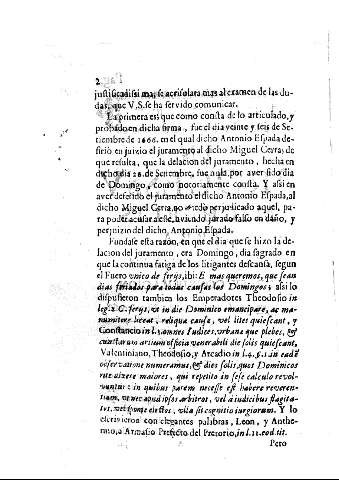 2
justificadissima, se acrisolara mas al examen de las du-
das, que V.S. se ha servido comunicar.
La primera es: que como consta de lo articulado, y
probado en dicha firma, fue el dia veinte y seis de Se-
tiembre de 1666. en el qual dicho Antonio Espada de-
firiò en juizio el juramento al dicho Miguel Cerra; de
que resulta, que la delacion del juramento, hecha en
dicho dia 26. de Setiembre, fue nula, por aver sido dia
de Domingo, como notoriamente consta. Y assi en
aver deferido el juramento el dicho Antonio Espada, al
dicho Miguel Cerra, no quedò perjudicado aquel, pa-
ra poder acusar a este, aviendo jurado falso en daño, y
perjuizio del dicho, Antonio Espada.
Fundase esta razòn, en que el dia que se hizo la de-
lacion del juramento, era Domingo, dia sagrado en
que la continua fatiga de los litigantes descansa, segun
el Fuero vnico de ferijs, ibi: E mas queremos, que sean
dias feriados para todas causas los Domingos; assi lo
dispusieron tambien los Emperadores Theodosio in
leg. 2. C. ferijs, vt in die Dominico emancipare, ac ma-
numitere liceat, reliquæ causæ, vel lites quiescant, y
Constancio in l. 3. omnes Iudices, vrbanæ que plebes, &
cunctarum artium officia venerabili die solis quiescant,
Valentiniano, Theodosio, y Arcadio in l. 4. §. 1 in eadẽ
observatione numeramus, & dies solis, quos Dominicos
rite dixere maiores, qui repetito in sese calculo revol-
vuntur: in quibus parem necesse est habere reveren-
tiam, vt nec apud ipsos arbitros, vel à iudicibus flagita-
tos, vel sponte electos, vlla sit cognitio iurgiorum. Y lo
escrivieron con elegantes palabras, Leon, y Anthe-
mio, a Armasio Prefecto del Pretorio, in l. 11. eod. tit.
Pero